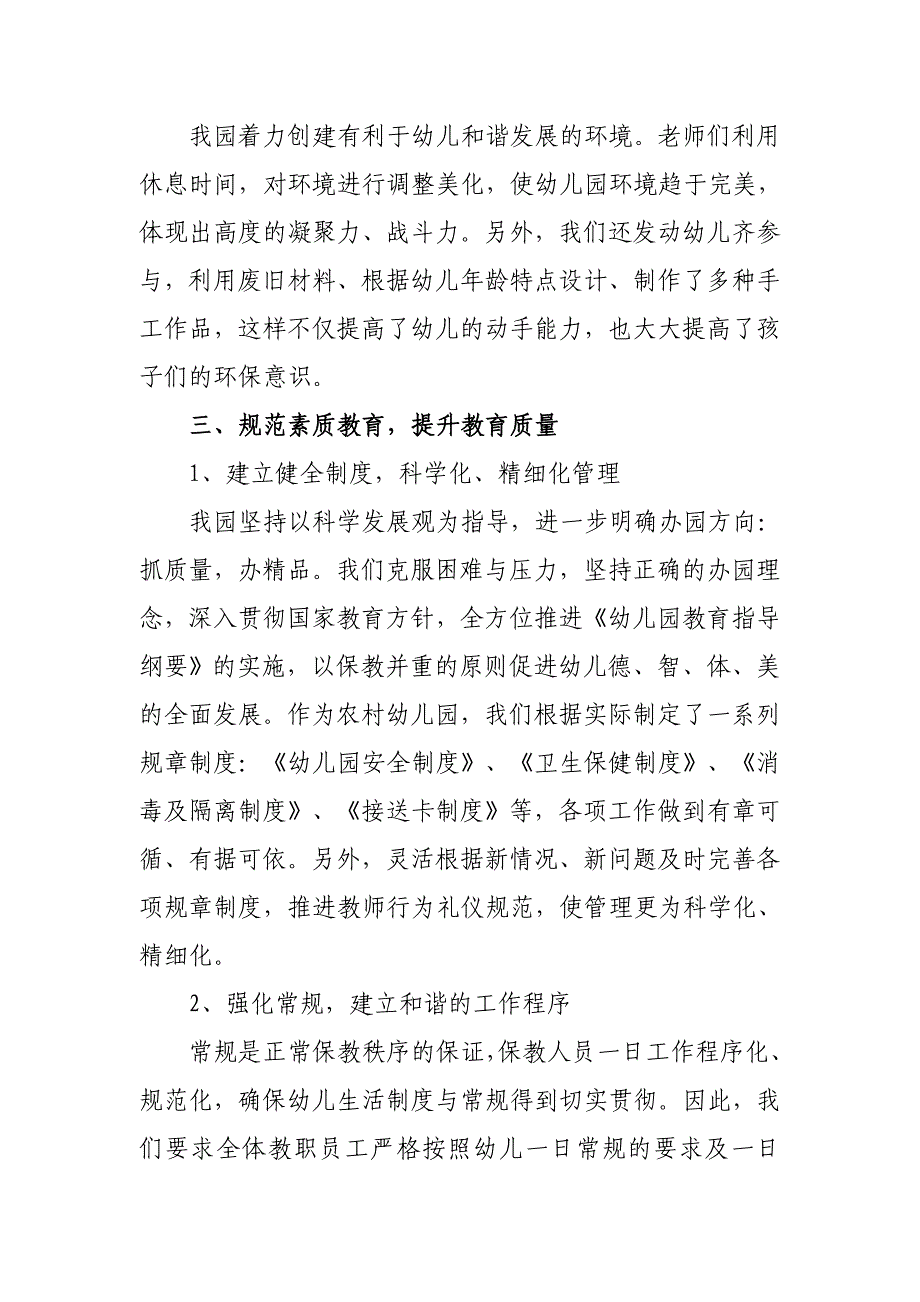 我园着力创建有利于幼儿和谐发展的环境。老师们利用
休息时间，对环境进行调整美化，使幼儿园环境趋于完美，
体现出高度的凝聚力、战斗力。另外，我们还发动幼儿齐参
与，利用废旧材料、根据幼儿年龄特点设计、制作了多种手
工作品，这样不仅提高了幼儿的动手能力，也大大提高了孩
子们的环保意识。
三、规范素质教育，提升教育质量
1、建立健全制度，科学化、精细化管理
我园坚持以科学发展观为指导，进一步明确办园方向：
抓质量，办精品。我们克服困难与压力，坚持正确的办园理
念，深入贯彻国家教育方针，全方位推进《幼儿园教育指导
纲要》的实施，以保教并重的原则促进幼儿德、智、体、美
的全面发展。作为农村幼儿园，我们根据实际制定了一系列
规章制度：《幼儿园安全制度》、《卫生保健制度》、《消
毒及隔离制度》、《接送卡制度》等，各项工作做到有章可
循、有据可依。另外，灵活根据新情况、新问题及时完善各
项规章制度，推进教师行为礼仪规范，使管理更为科学化、
精细化。
2、强化常规，建立和谐的工作程序
常规是正常保教秩序的保证，保教人员一日工作程序化、
规范化，确保幼儿生活制度与常规得到切实贯彻。因此，我
们要求全体教职员工严格按照幼儿一日常规的要求及一日